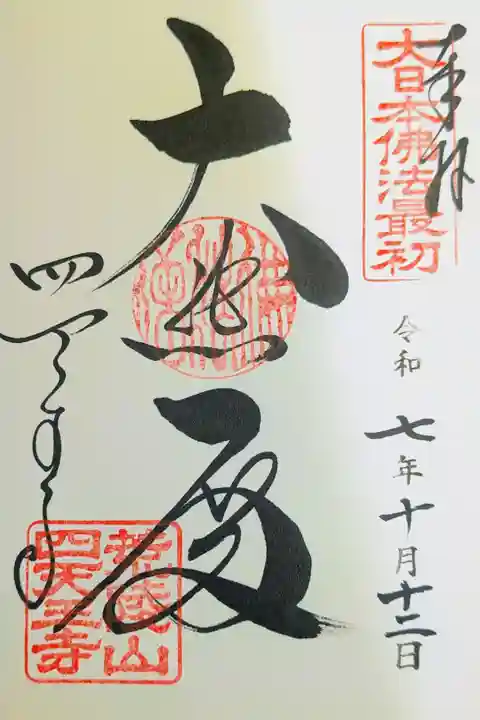 奉拝
大日本佛法最初
令和七年十月十二日
大
四天王寺
荒陵山
四天王寺